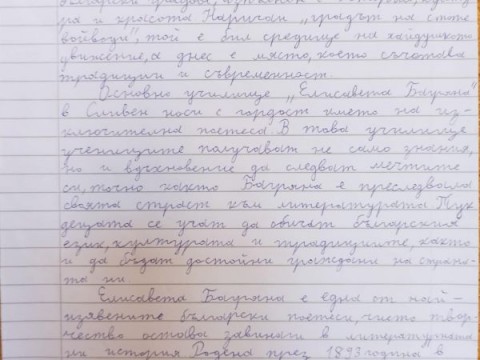 български градове, 
ра и красота Наричан „градът на стоте
войводи", той е бил средище на хайдушкото
движение, а днес е място, което съчетава
традиции и съвременност.
Основно училище „Елисавета Багряна"
в Сливен носи с гордост името на из-
ключителна поетеса. В това училище
учениците получават не само знания,
но и вдъхновение да следват мечтите
си, точно както Багряна е преследвала
своята страст към литературата Тук
децата се учат да обичат българския
език, културата и традициите, както
и да бъдат достойни граждани на страна-
та ни.
Елисавета Багряна е една от най-
изявените български поетеси, чието твор-
чество остава завинаги в литературната
ни история Родена през 1893 година в